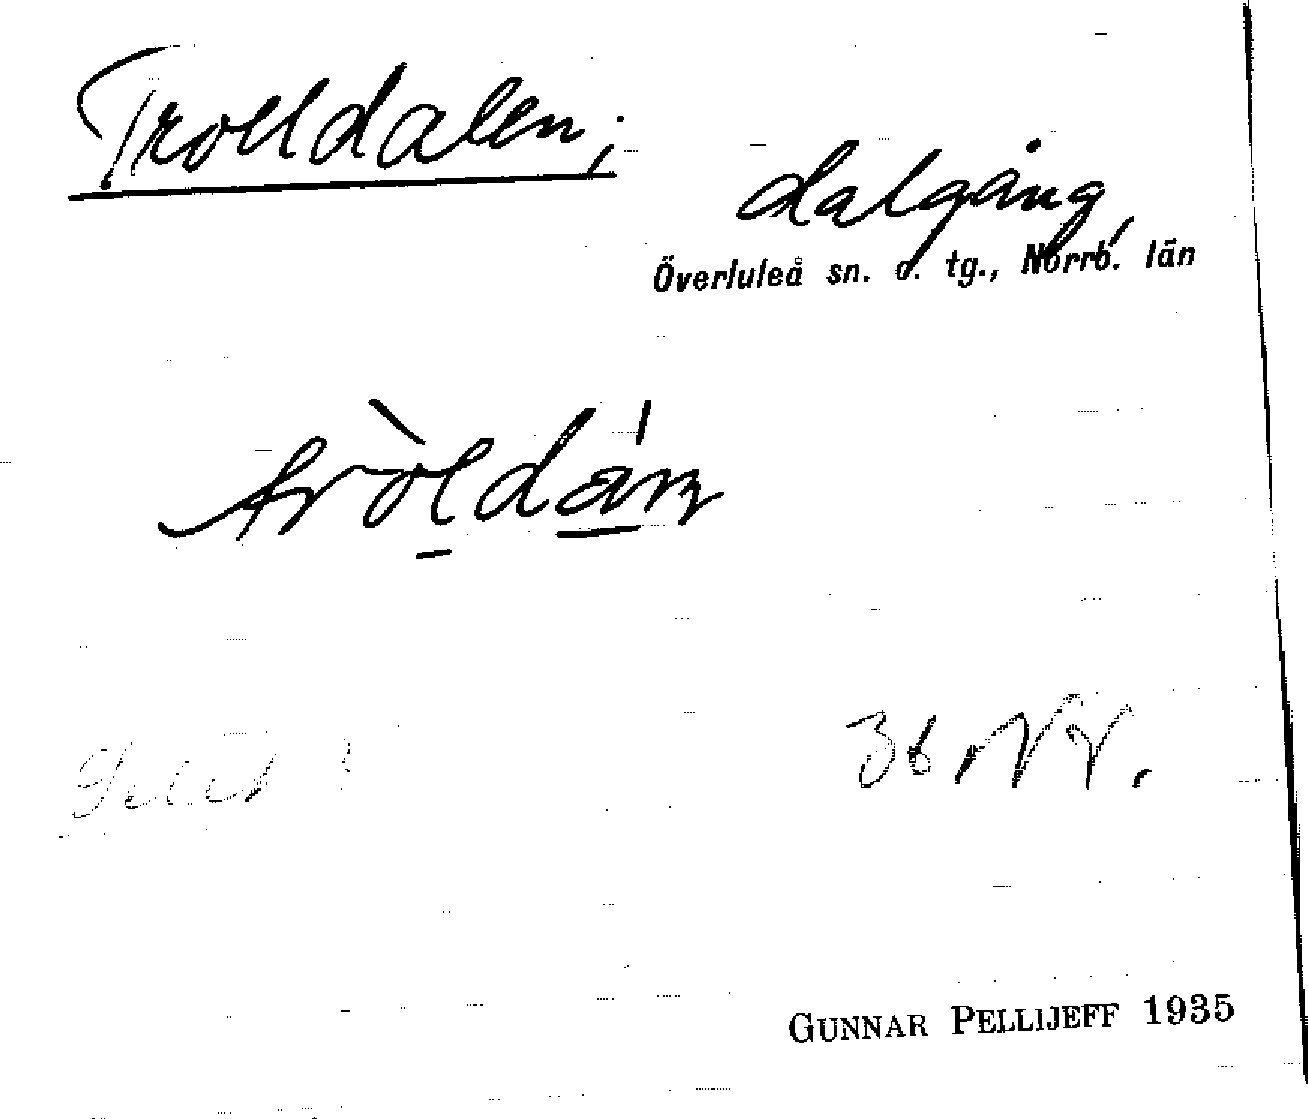 Trolldalen;
dalgång,
Överluleå sn. o. tg., Norrb. län
tròldán
36
GUNNAR PELLIJEFF 1935